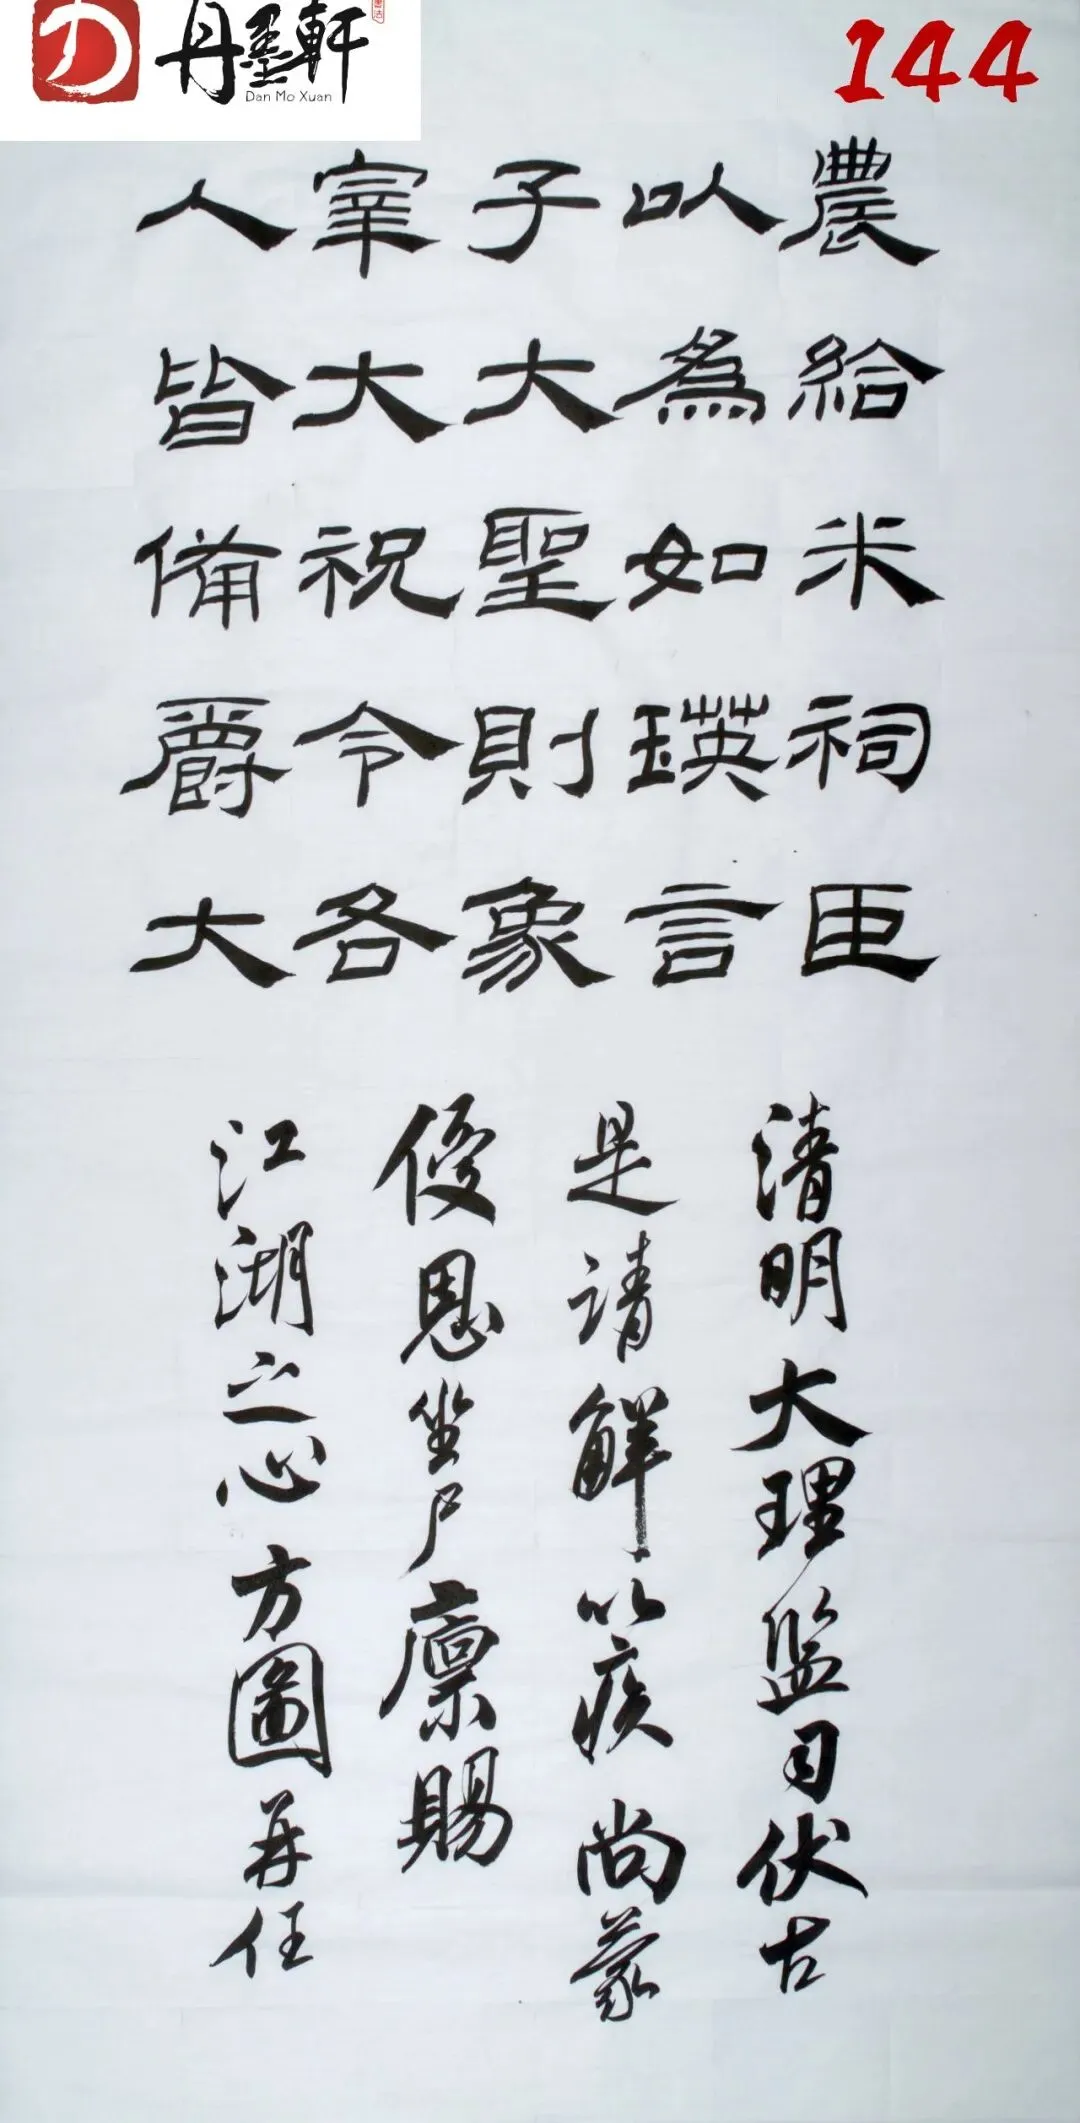 丹墨軒
Dan Mo Xuan
144
農給米祠臣
以為如瑛言
子大聖則象
宰大祝令各
人皆備爵大
清明大理監司伏古
是請解以疾尚蒙
優恩坐尸廪賜
江湖之心方圖再任